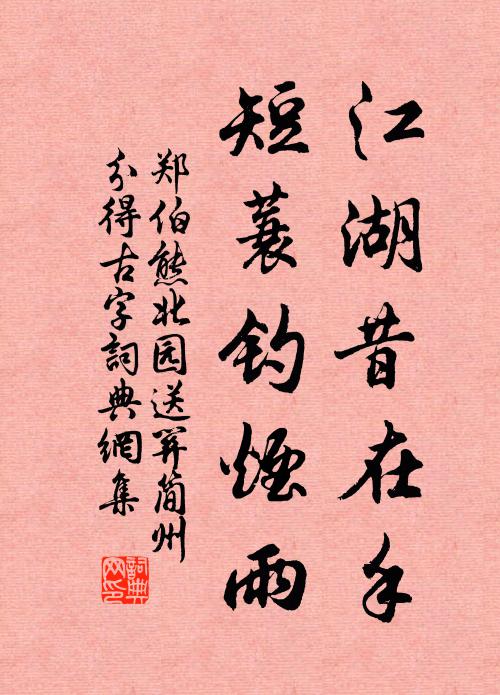 江湖昔在手
短蓑钓煙雨
郑伯熊北园送羿简州
分得古字詞典網集
詞典网印